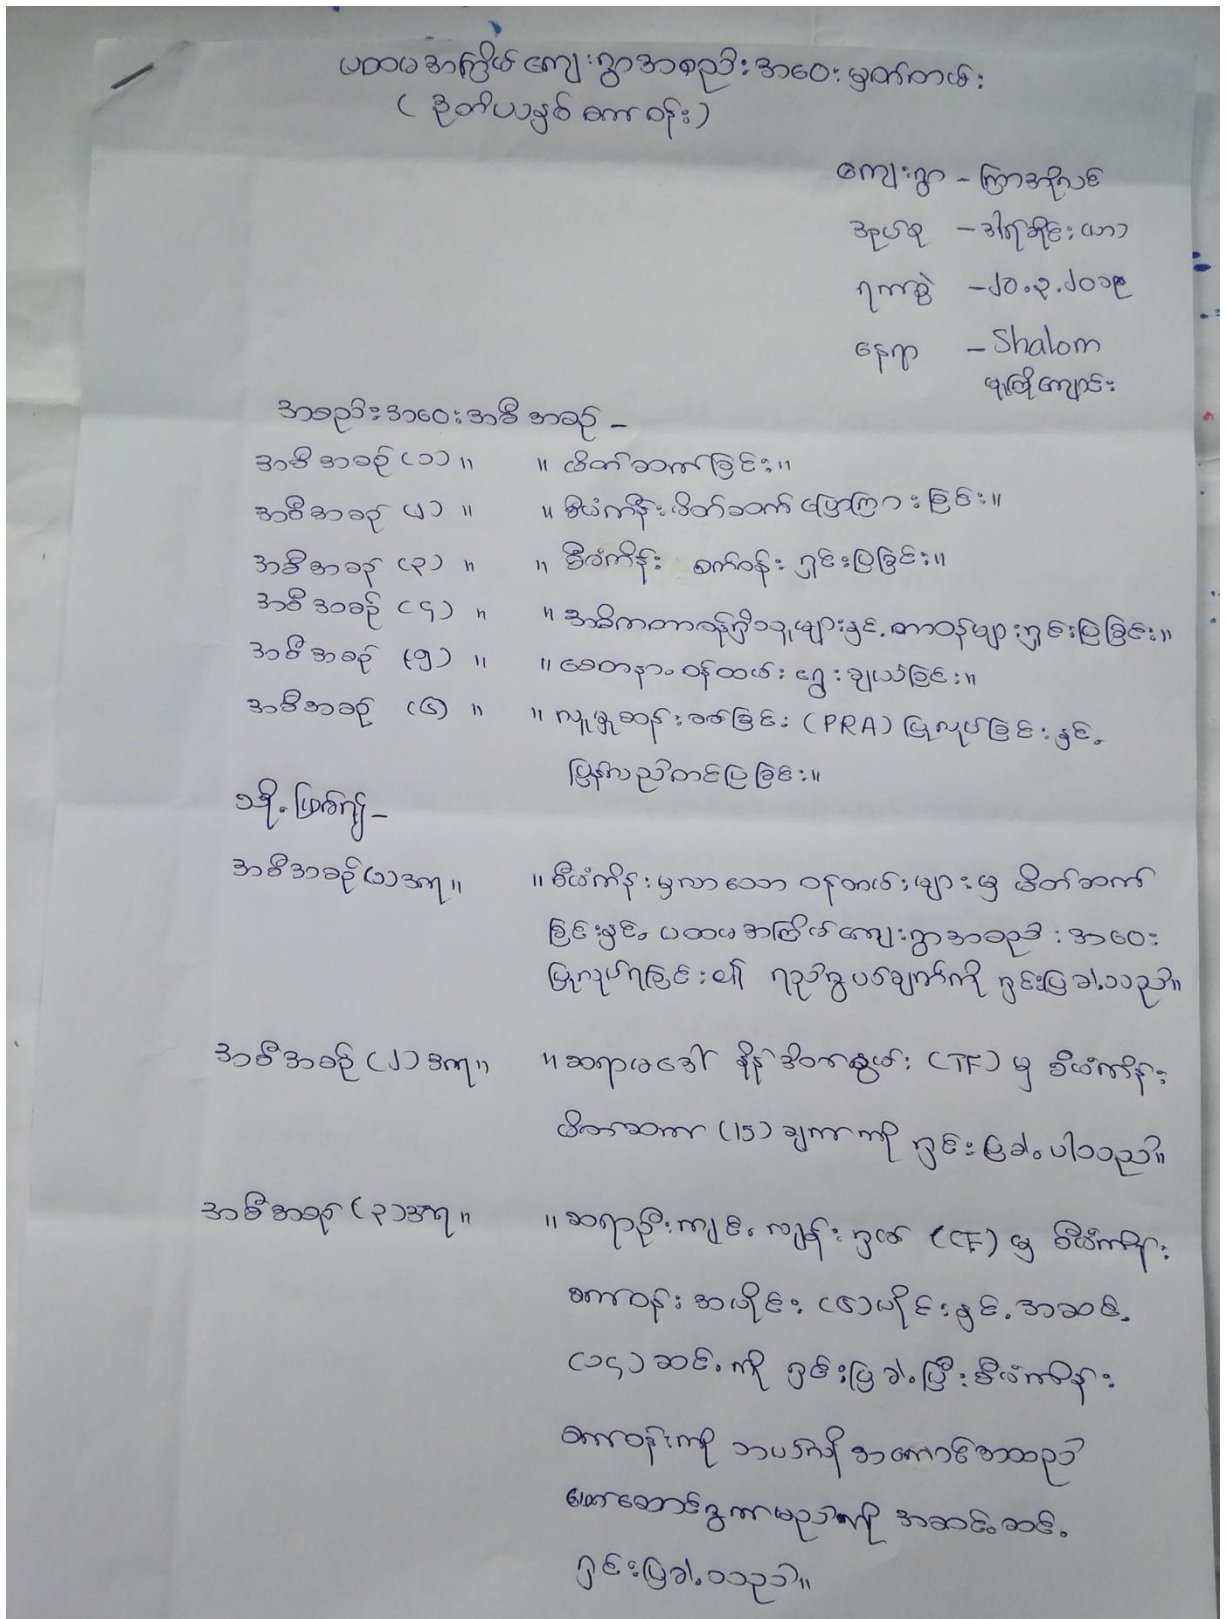 ပထမအကြိမ် ကျေးရွာအစည်းအဝေး မှတ်တမ်း
( ဒုတိယနှစ် စက်ဝန်း )
ကျေးရွာ - ကြာအိုလစ်
အုပ်စု - ဒါရ်ဆိုင်း (ဟာ)
ရက်စွဲ - ၂၀.၃.၂၀၁၉
နေရာ - Shalom
မူကြိုကျောင်း
အစည်းအဝေးအစီအစဉ် -
အစီအစဉ် (၁) ။ ။ မိတ်ဆက်ခြင်း။
အစီအစဉ် (၂) ။ ။ စီမံကိန်း မိတ်ဆက် ပြောကြားခြင်း။
အစီအစဉ် (၃) ။ ။ စီမံကိန်း စက်ဝန်း ရှင်းပြခြင်း။
အစီအစဉ် (၄) ။ ။ အဓိကတာဝန်ရှိသူများနှင့် တာဝန်များရှင်းပြခြင်း။
အစီအစဉ် (၅) ။ ။ စေတနာ့ဝန်ထမ်း ရွေးချယ်ခြင်း။
အစီအစဉ် (၆) ။ ။ လူမှုဆန်းစစ်ခြင်း (PRA) ပြုလုပ်ခြင်းနှင့်
ပြန်လည်တင်ပြခြင်း။
သို့ဖြစ်၍ -
အစီအစဉ် (၁) အရ ။ ။ စီမံကိန်းမှလာသော ဝန်ထမ်းများမှ မိတ်ဆက်
ခြင်းနှင့် ပထမအကြိမ်ကျေးရွာအစည်းအဝေး
ပြုလုပ်ရခြင်း၏ ရည်ရွယ်ချက်ကို ရှင်းပြခဲ့သည်။
အစီအစဉ် (၂) အရ ။ ။ ဆရာမဒေါ် နိန် (TF) မှ စီမံကိန်း
မိတ်ဆက် (15) ချက်ကို ရှင်းပြခဲ့ပါသည်။
အစီအစဉ် (၃) အရ ။ ။ ဆရာဦးကျင့် (CF) မှ စီမံကိန်း
စက်ဝန်း အပိုင်း (၆) ပိုင်းနှင့် အဆင့်
(၁၄) ဆင့်ကို ရှင်းပြခဲ့ပြီး စီမံကိန်း
စက်ဝန်းကို ဘယ်လို အကောင်အထည်
ဖော်ဆောင်ရွက်မည်ကို အဆင့်ဆင့်
ရှင်းပြခဲ့သည်။